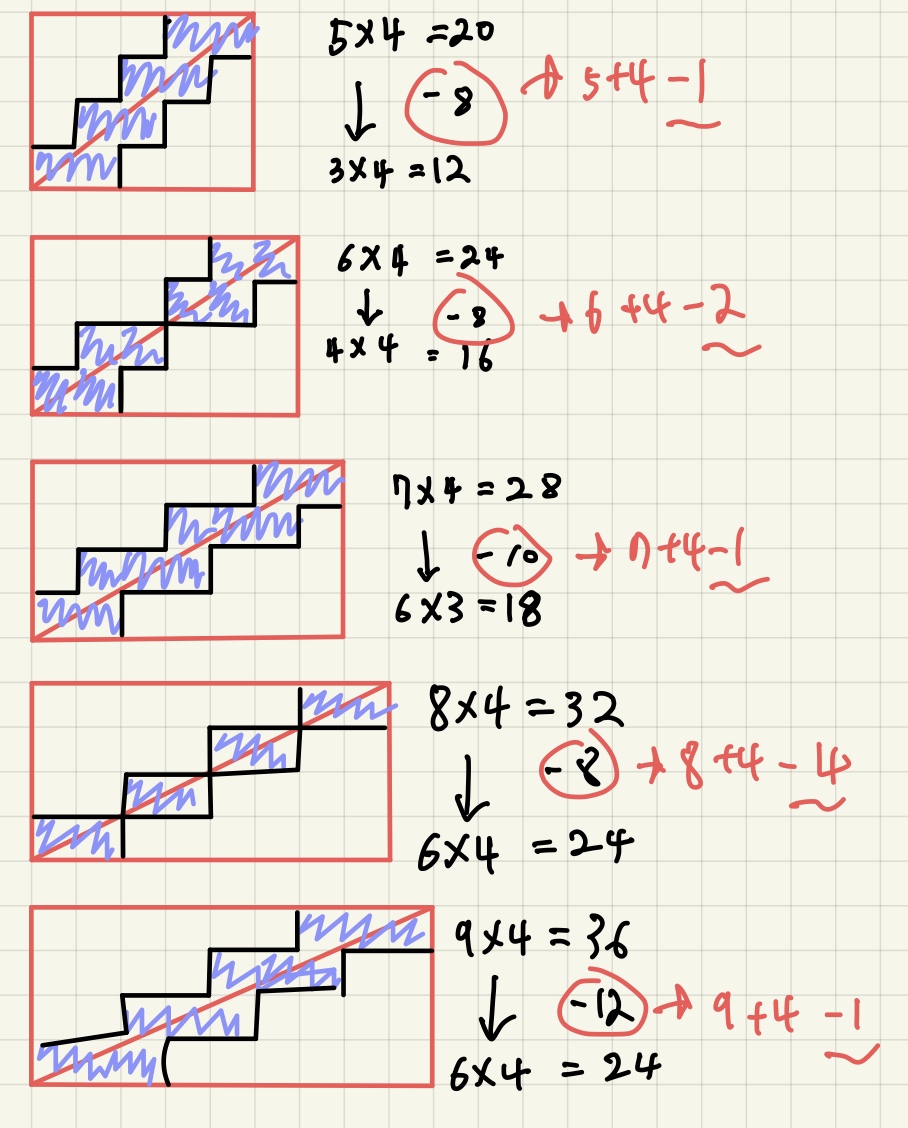 5×4 =20
-8 → 5+4 -1
↓
3×4 =12
6×4 =24
↓ -8 → 6 +4 -2
4×4 = 16
7×4 =28
↓ -10 → 7+4-1
6×3 =18
8×4 =32
↓ -8 → 8 +4 -4
6×4 =24
9×4 =36
↓ -12 → 9+4 -1
6×4 = 24